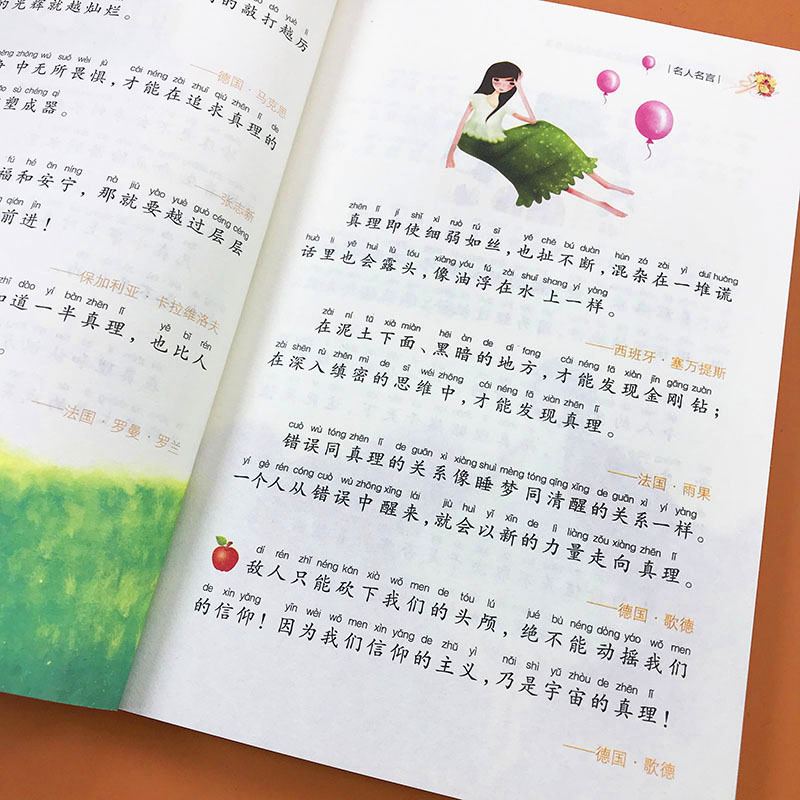 de qiāo dǎ yuè lì
的光辉就越灿烂。
的敲打越厉
——德国·马克思
zhōng wú suǒ wèi jù cái néng zài zhuī qiú zhēn lǐ de
中无所畏惧，才能在追求真理的
sù chéng qì
塑成器。
——张志新
fú hé ān níng nà jiù yào yuè guò céng céng
福和安宁，那就要越过层层
qián jìn
前进！
——保加利亚·卡拉维洛夫
zhī dào yí bàn zhēn lǐ yě bǐ rén
知道一半真理，也比人
——法国·罗曼·罗兰
名人名言
zhēn lǐ jí shǐ xì ruò rú sī yě chě bú duàn hùn zá zài yì duī huǎng
真理即使细弱如丝，也扯不断，混杂在一堆谎
huà lǐ yě huì lù tóu xiàng yóu fú zài shuǐ shang yí yàng
话里也会露头，像油浮在水上一样。
——西班牙·塞万提斯
zài ní tǔ xià miàn hēi àn de dì fang cái néng fā xiàn jīn gāng zuàn
在泥土下面、黑暗的地方，才能发现金刚钻；
zài shēn rù zhěn mì de sī wéi zhōng cái néng fā xiàn zhēn lǐ
在深入缜密的思维中，才能发现真理。
——法国·雨果
cuò wù tóng zhēn lǐ de guān xì xiàng shuì mèng tóng qīng xǐng de guān xì yí yàng
错误同真理的关系像睡梦同清醒的关系一样。
yí gè rén cóng cuò wù zhōng xǐng lái jiù huì yǐ xīn de lì liàng zǒu xiàng zhēn lǐ
一个人从错误中醒来，就会以新的力量走向真理。
——德国·歌德
dí rén zhǐ néng kǎn xià wǒ men de tóu lú jué bù néng dòng yáo wǒ men
敌人只能砍下我们的头颅，绝不能动摇我们
de xìn yǎng yīn wèi wǒ men xìn yǎng de zhǔ yì nǎi shì yǔ zhòu de zhēn lǐ
的信仰！因为我们信仰的主义，乃是宇宙的真理！
——德国·歌德